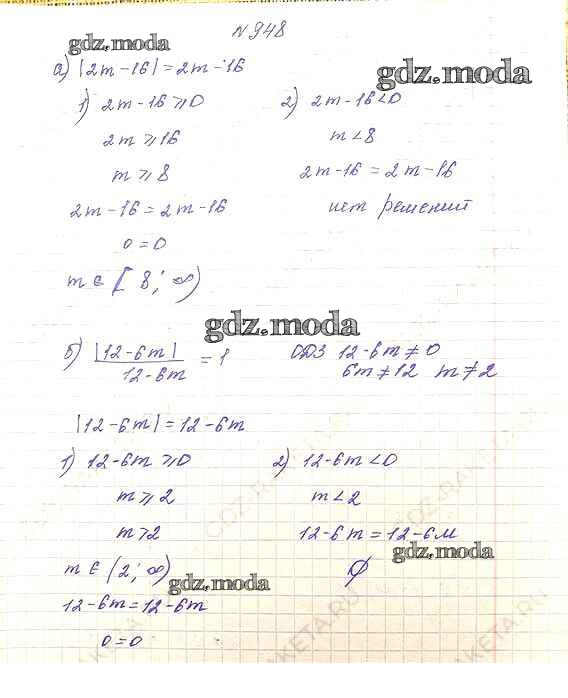 N 948
gdz.moda
а) |2m-16| = 2m-16
gdz.moda
1) 2m-16 ⩾ 0
2m ⩾ 16
m ⩾ 8
2m-16 = 2m-16
0 = 0
m ∈ [8; ∞)
2) 2m-16 < 0
m < 8
2m-16 = 2m-16
нет решений
gdz.moda
б) |12-6m| / 12-6m = 1
ОДЗ 12-6m ≠ 0
6m ≠ 12 m ≠ 2
|12-6m| = 12-6m
1) 12-6m ⩾ 0
m ⩾ 2
m > 2
m ∈ (2; ∞)
gdz.moda
12-6m = 12-6m
0 = 0
2) 12-6m < 0
m < 2
12-6m = 12-6м
gdz.moda
∅